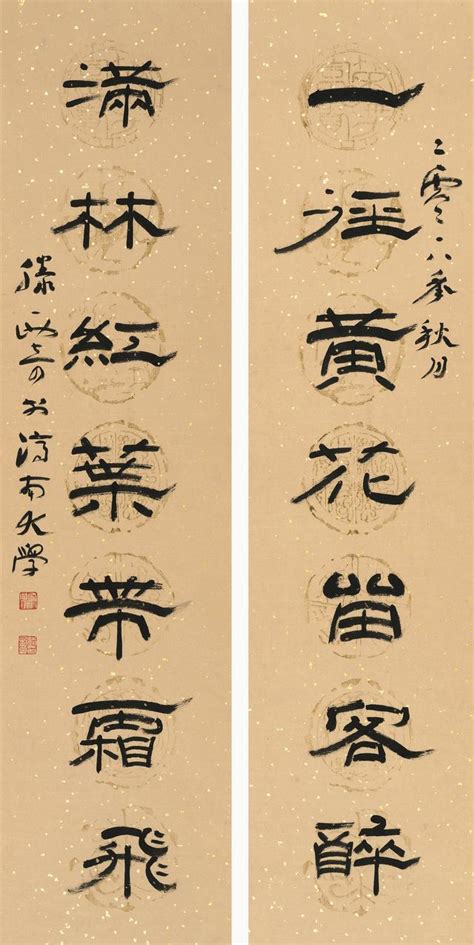 一徑黃花留客醉
二零一八年秋月
滿林紅葉帶霜飛
於濟南大學